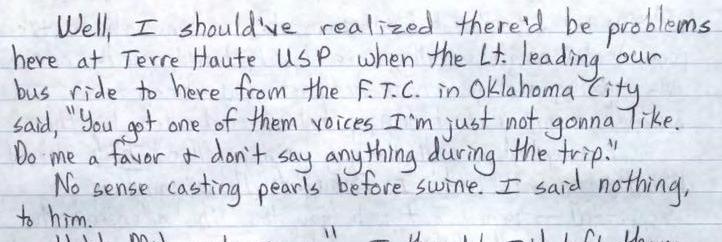 Well, I should've realized there'd be problems
here at Terre Haute USP when the Lt. leading our
bus ride to here from the F.T.C. in Oklahoma City
said, "You got one of them voices I'm just not gonna like.
Do me a favor & don't say anything during the trip."
No sense casting pearls before swine. I said nothing,
to him.